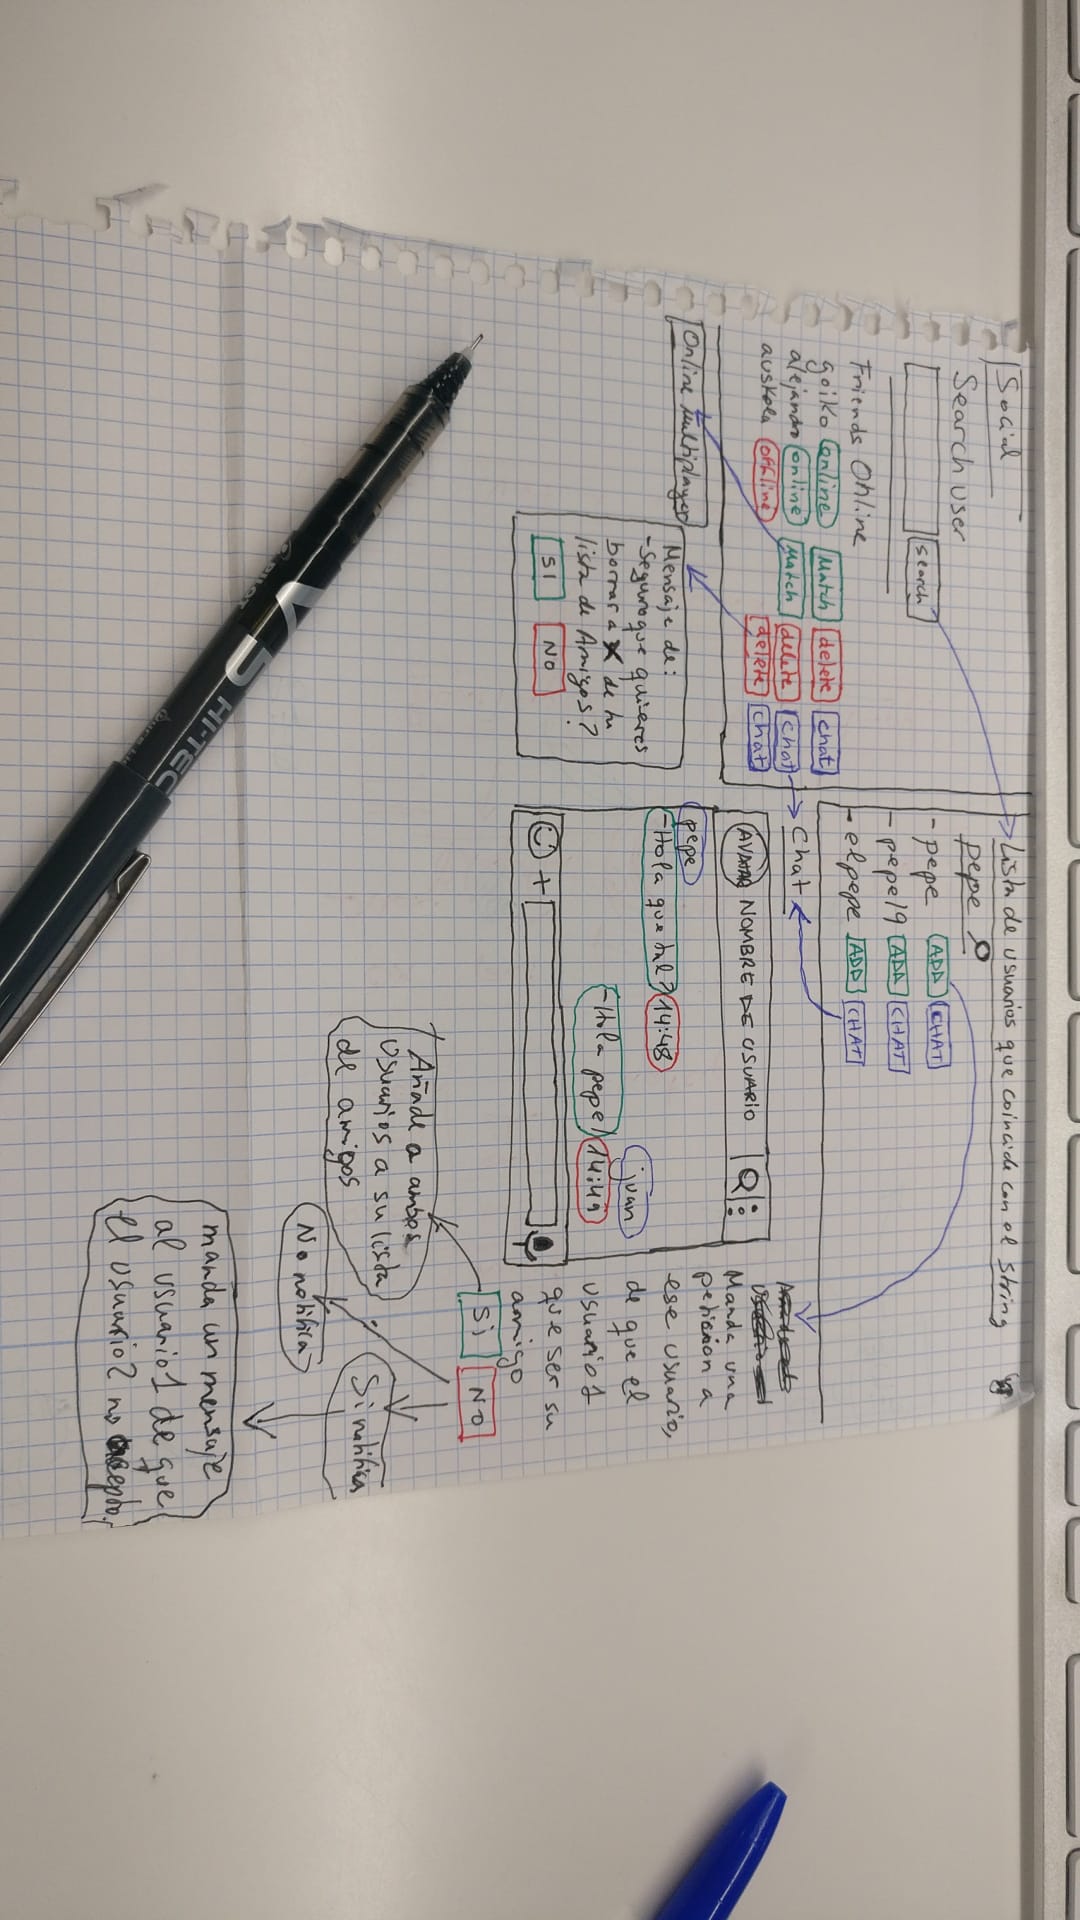 Social
Search user
search
Friends Online
goiko online Match delete chat
alejandro online Match delete chat
auskola offline delete chat
Online Multiplayer
Mensaje de:
-Seguro que quieres
borrar a X de tu
lista de Amigos?
SI NO
Lista de usuarios que coincide con el string
pepe
- pepe ADD CHAT
- pepe19 ADD CHAT
- elpepe ADD CHAT
Chat
AVATAR NOMBRE DE USUARIO
pepe
-Hola que tal? 14:48
juan
-Hola pepe! 14:49
+
Manda una
peticion a
ese usuario,
de que el
usuario1
que ser su
amigo
Si NO
Añade a ambos
usuarios a su lista
de amigos
No notifica
Si notifica
manda un mensaje
al usuario1 de que
el usuario2 no acepto.
PILOT V5 HI-TEC